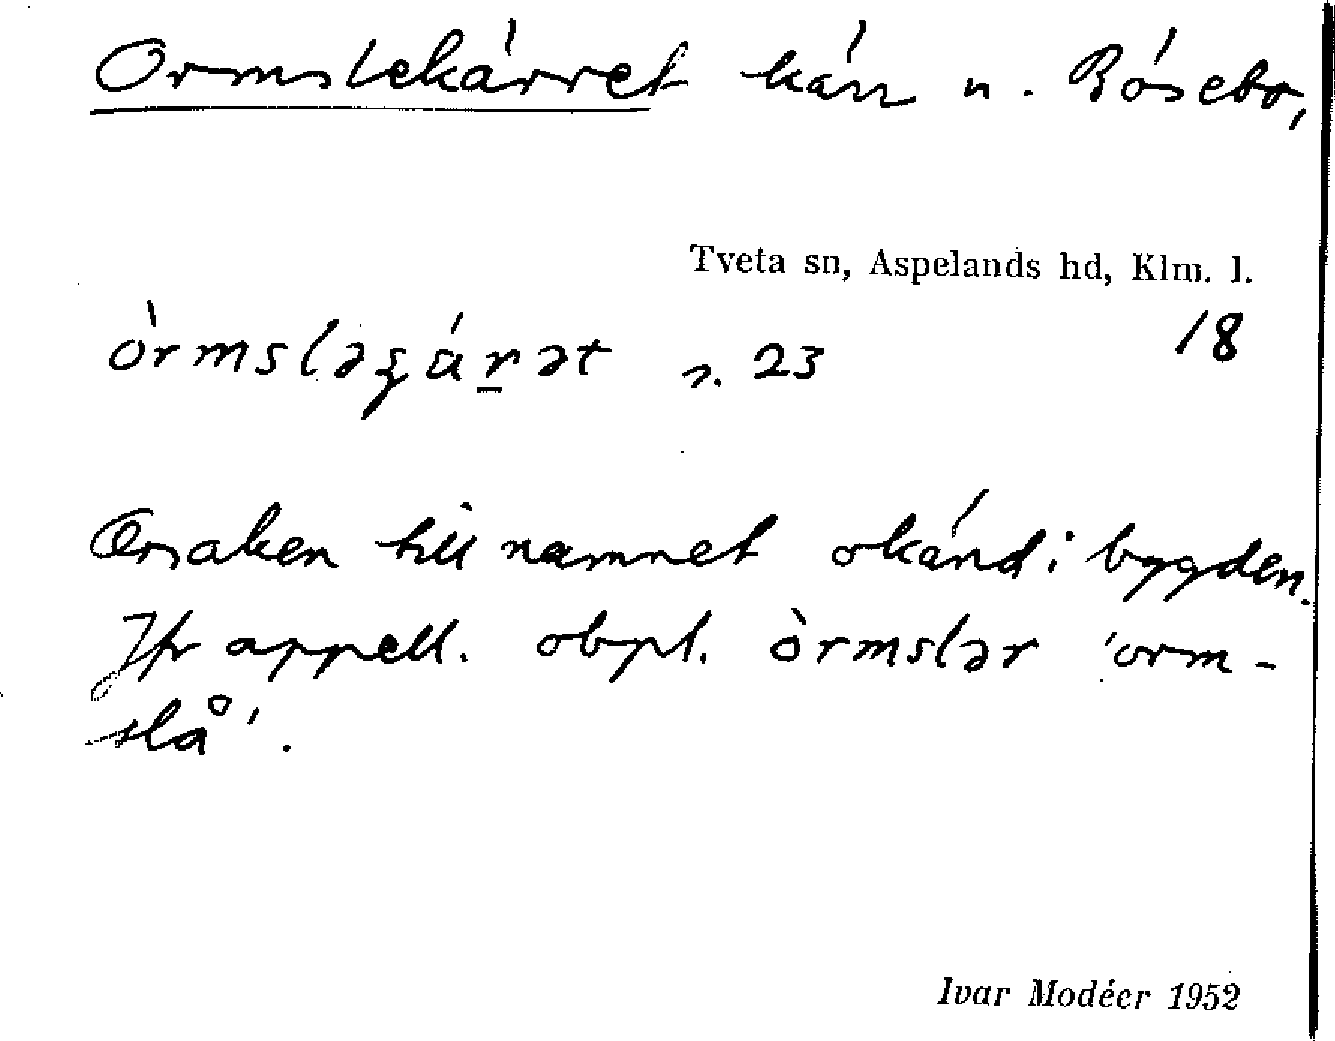 Ormslekärret kärr n. Bösebo,
Tveta sn, Aspelands hd, Klm. l.
18
òrmsləʂáṟət s. 23
Orsaken till namnet okänd i bygden.
Jfr appell. obpl. òrmslər 'orm-
slå'.
Ivar Modéer 1952